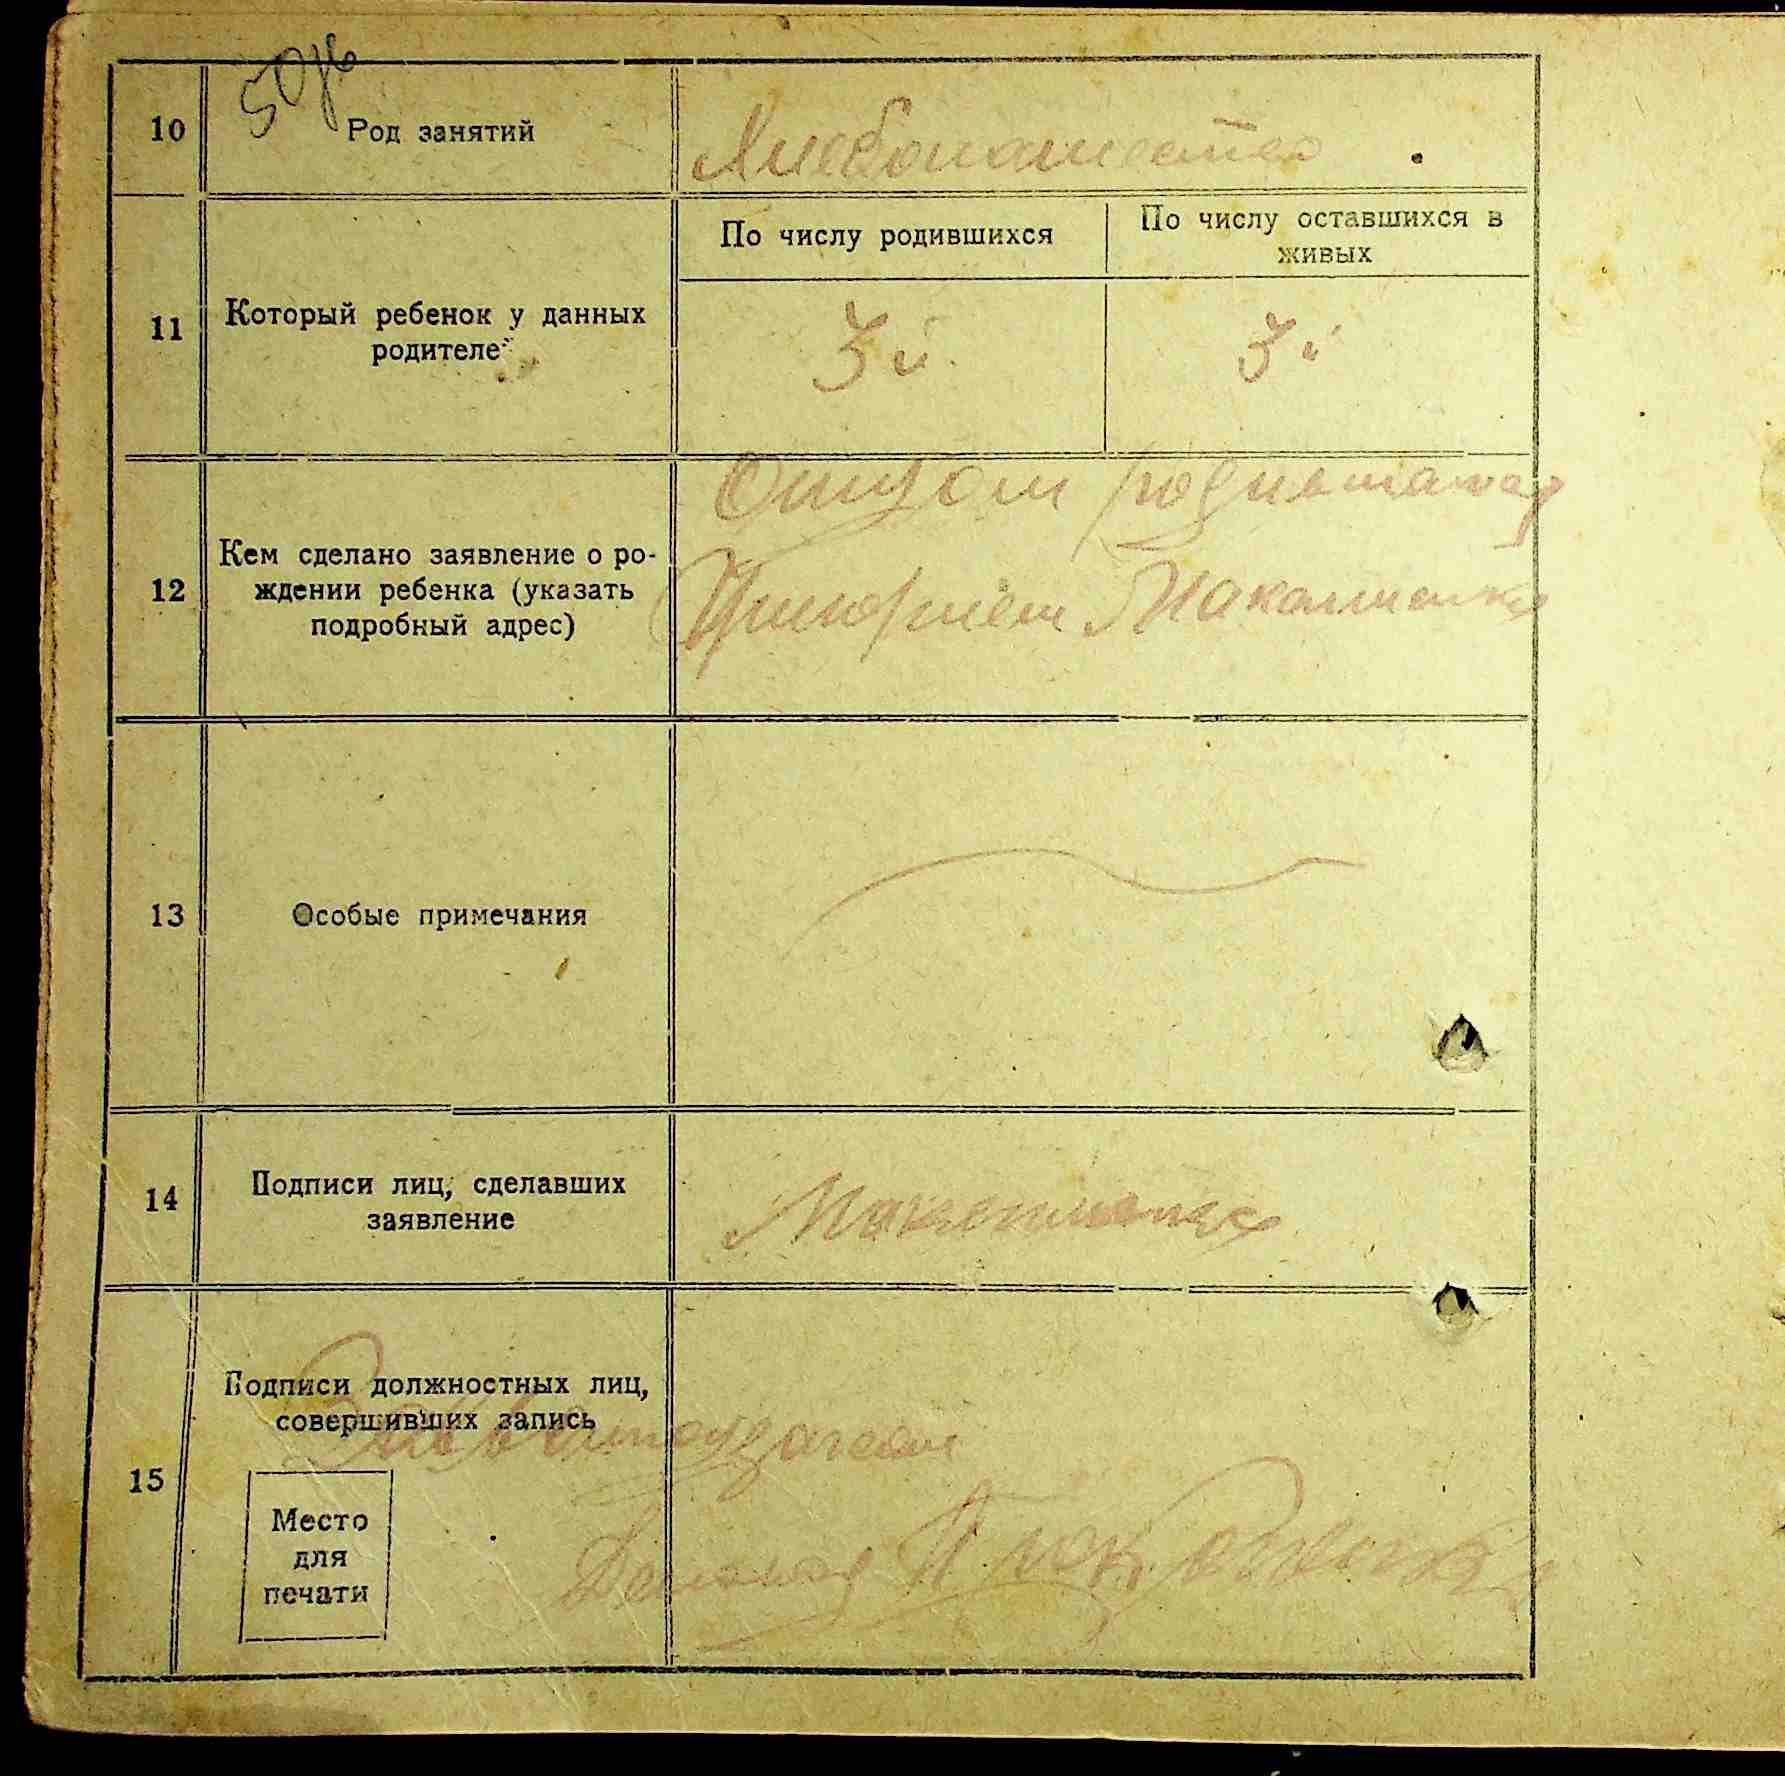 50
10
Род занятий
Хлебопашество
11
Который ребенок у данных
родителей
По числу родившихся
По числу оставшихся в
живых
3й
3й
12
Кем сделано заявление о ро-
ждении ребенка (указать
подробный адрес)
Отцом
Григорием
13
Особые примечания
14
Подписи лиц, сделавших
заявление
15
Подписи должностных лиц,
совершивших запись
Место
для
печати